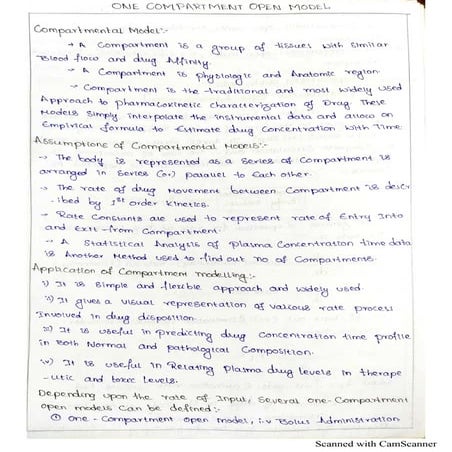 ONE COMPARTMENT OPEN MODEL
Compartmental Model:-
→ A Compartment is a group of tissues with similar
Blood flow and drug Affinity.
→ A Compartment is physiologic and Anatomic region.
→ Compartment is the traditional and most widely used
Approach to pharmacokinetic characterization of Drug. These
Models simply interpolate the instrumental data and allow an
Empirical formula to Estimate drug Concentration with Time.
Assumptions of Compartmental Models:-
→ The body is represented as a Series of Compartment is
arranged in Series (or) parallel to Each other.
→ The rate of drug Movement between Compartment is descr
-ibed by 1st order kinetics.
→ Rate Constants are used to represent rate of Entry Into
and Exit from Compartment.
→ A Statistical Analysis of plasma Concentration time data
is Another Method used to find out no of Compartments.
Application of Compartment modelling:-
i) It is Simple and flexible approach and widely used.
ii) It gives a visual representation of various rate process
Involved in drug disposition.
iii) It is useful in predicting drug Concentration time profile
in Both Normal and pathological Composition.
iv) It is useful in Relating plasma drug levels in therape
-utic and toxic levels.
Depending upon the rate of Input, Several one-Compartment
open models Can be defined:-
① one-Compartment open model, i.v Bolus Administration
Scanned with CamScanner